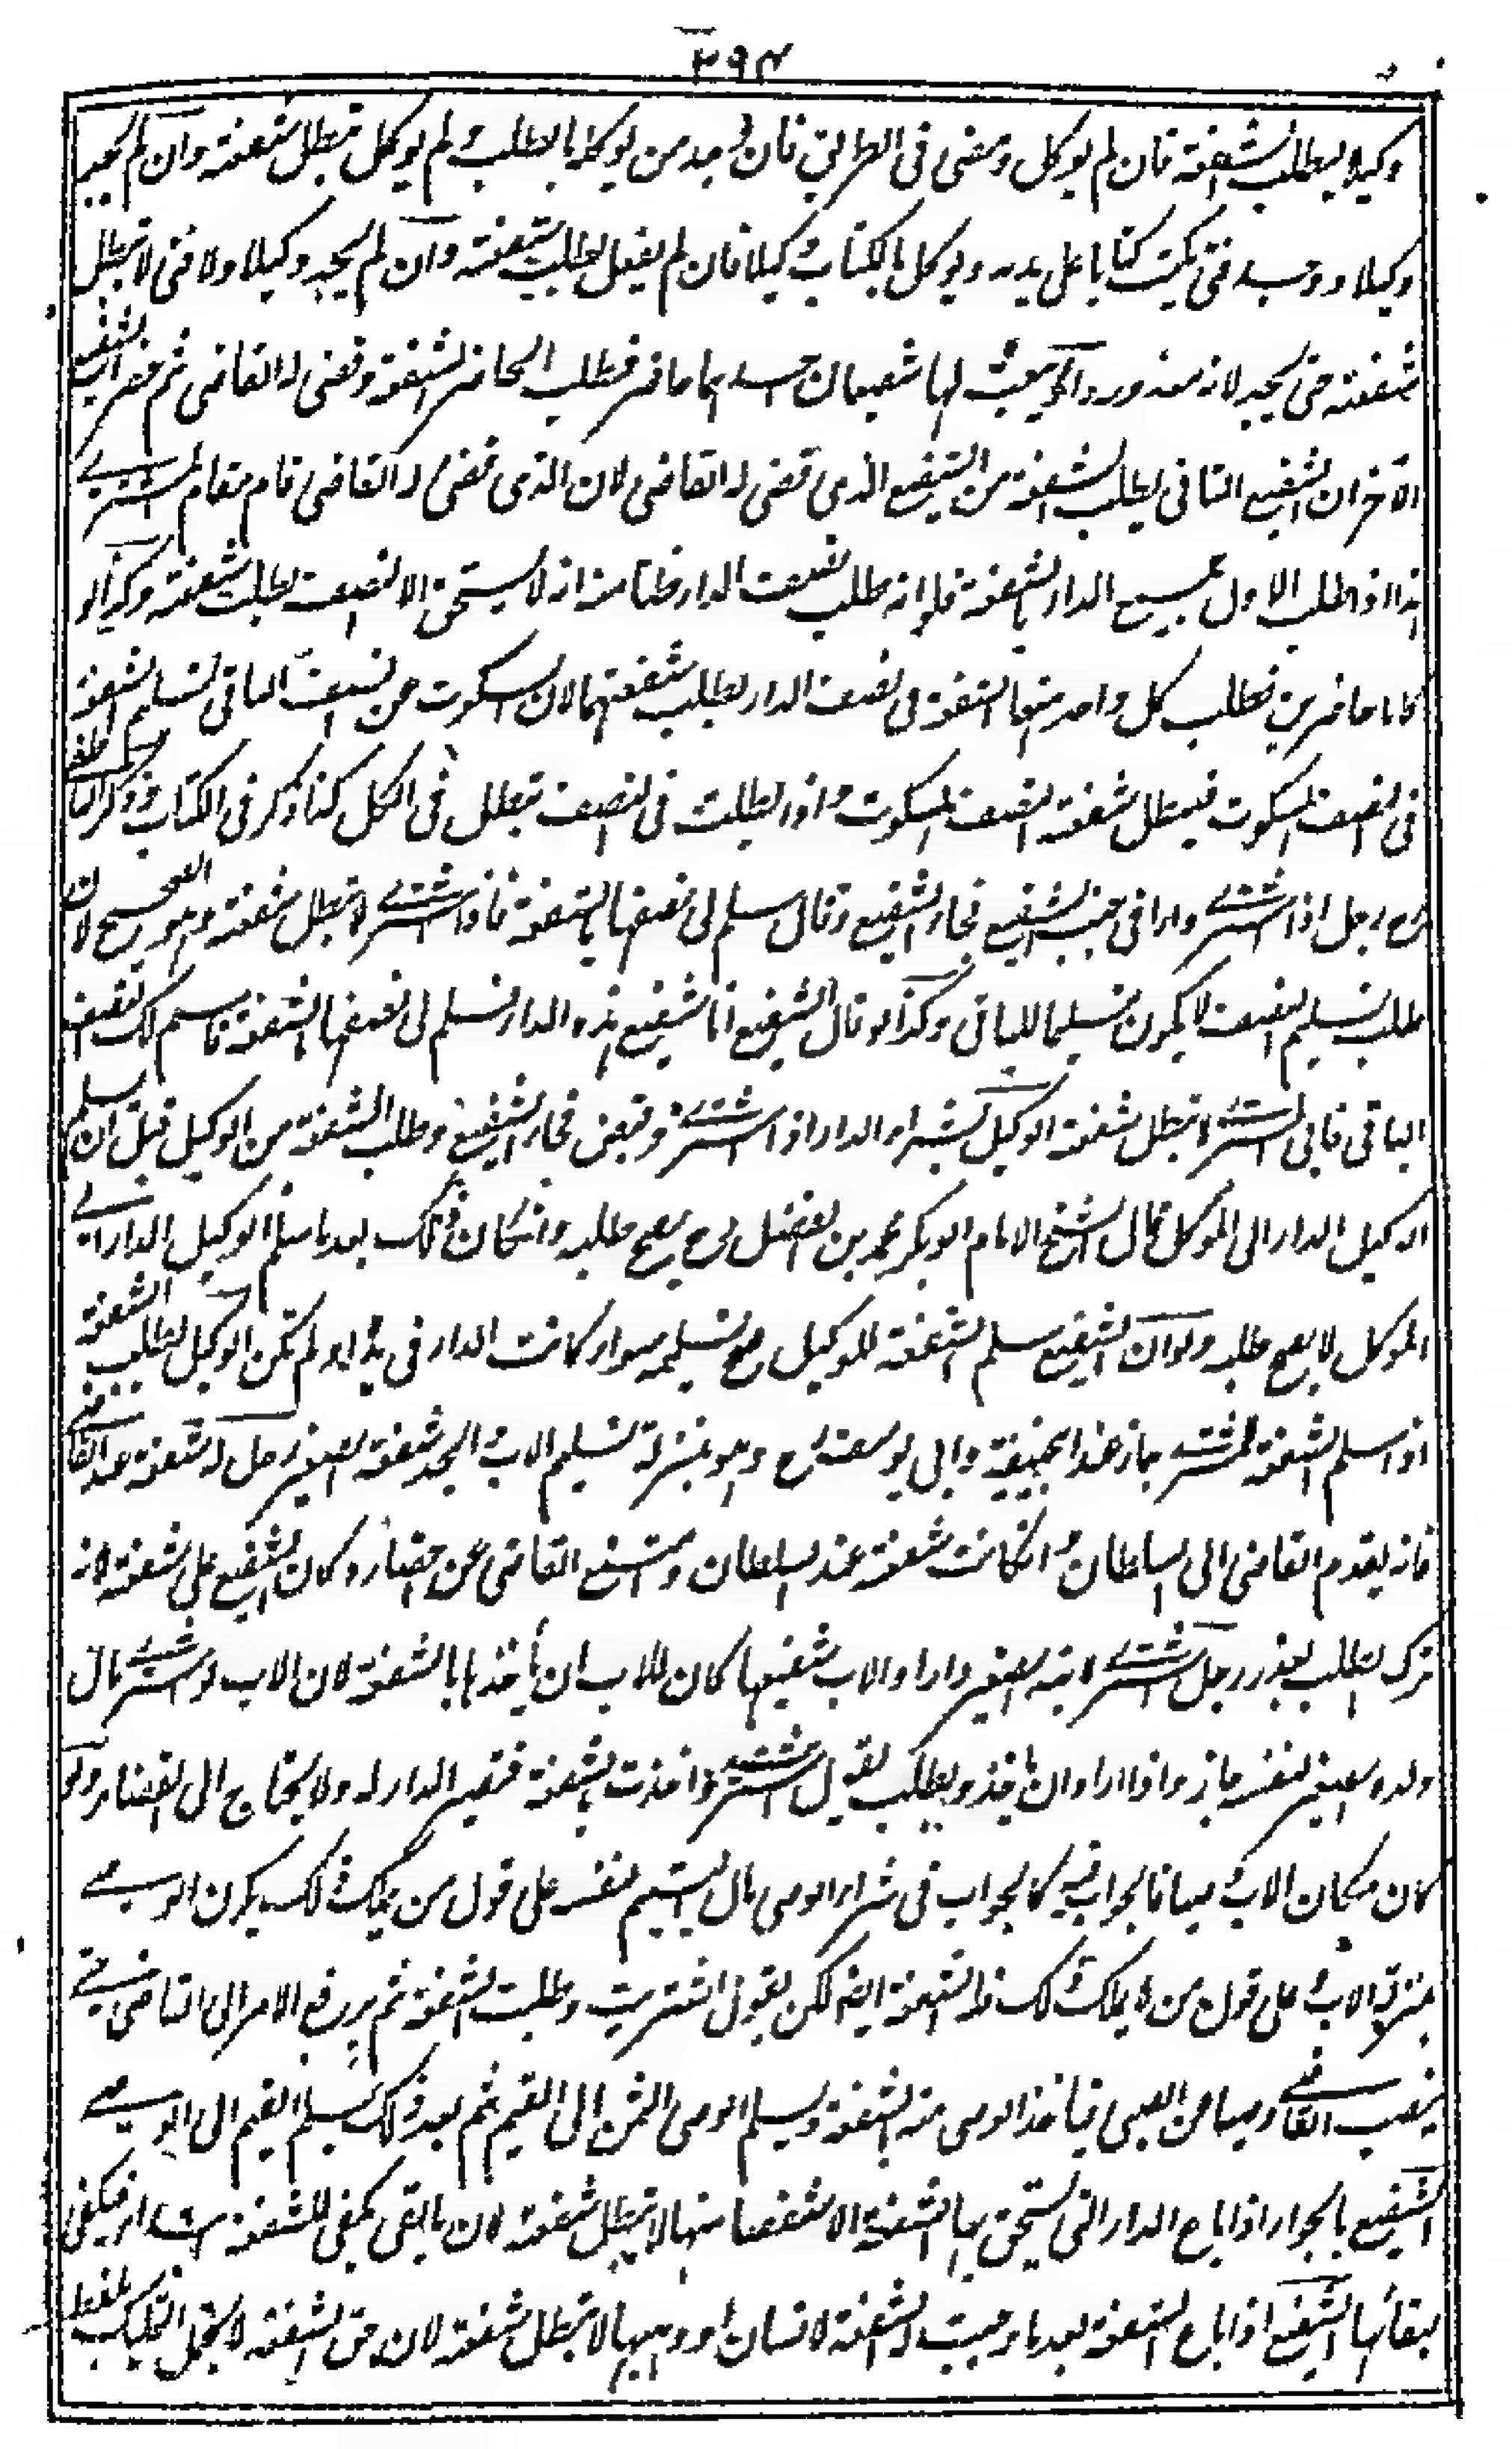 ٣٩٤
وكيلا يطلب الشفعة فان لم يوكل ومضى فى الطريق فان وجد من يوكله بالطلب ولم يوكل تبطل شفعته وان لم يجد
وكيلا ووجد فتى يكتب كتابا على يديه ويوكل بالكتاب وكيلا فان لم يفعل بطلت شفعته وان لم يجد وكيلا ولا فتى لا تبطل
شفعته حتى يجد لانه معذور دار بيعت لها شفيعان احدهما حاضر فطلب الحاضر الشفعة وقضى له القاضى ثم حضر الشفيع
الآخر ان الشفيع الثانى يطلب الشفعة من الشفيع الذى قضى له القاضى لان الذى قضى له القاضى قام مقام المشترى
هذا اذا طلب الاول جميع الدار بالشفعة فلو انه طلب نصف الدار ظنا منه انه لا يستحق الا النصف بطلت شفعته وكذا لو
كانا حاضرين فطلب كل واحد منهما الشفعة فى نصف الدار بطلت شفعتهما لان السكوت عن نصف الباقى تسليم الشفعة
فى النصف المسكوت فيبطل شفعة النصف المسكوت واذا بطلت فى النصف تبطل فى الكل كذا ذكر فى الكتاب وذكر الناطفى
رح رجل اذا اشترى دارا فى جنب الشفيع فجاء الشفيع وقال سلم لى نصفها بالشفعة فاذا اشترى لا تبطل شفعته وهو الصحيح لان
طلب تسليم النصف لا يكون تسليما للباقى وكذا لو قال الشفيع انا شفيع هذه الدار فسلم لى نصفها بالشفعة فاسلم لك النصف
الباقى فابى المشترى لا تبطل شفعته الوكيل بشراء الدار اذا اشترى وقبض فجاء الشفيع وطلب الشفعة من الوكيل قبل ان يسلم
الوكيل الدار الى الموكل قال الشيخ الامام ابو بكر محمد بن الفضل رح يصح طلبه وانكان ذلك بعدما سلم الوكيل الدار الى
الموكل لا يصح طلبه ولو ان الشفيع سلم الشفعة للوكيل صح تسليمه سواء كانت الدار فى يده او لم تكن الوكيل بطلب الشفعة
اذا سلم الشفعة للمشترى جاز عند ابى حنيفة وابى يوسف رح وهو بمنزلة تسليم الاب والجد شفعة الصغير رجل له شفعة عند القاضى
فانه يقدم القاضى الى السلطان وانكانت شفعته عند السلطان وامتنع القاضى عن احضاره كان الشفيع على شفعته لانه
ترك الطلب بعذر رجل اشترى لابنه الصغير دارا والاب شفيعها كان للاب ان يأخذها بالشفعة لان الاب لو اشترى مال
ولده الصغير لنفسه جاز واذا اراد ان ياخذ ويطلب يقول اشتريت واخذت بالشفعة فتصير الدار له ولا يحتاج الى القضاء ولو
كان مكان الاب وصيا فالجواب فيه كالجواب فى شراء الوصى مال اليتيم لنفسه على قول من يملك ذلك يكون الوصى
بمنزلة الاب وعلى قول من لا يملك ذلك فله الشفعة ايضا لكن يقول اشتريت وطلبت الشفعة ثم يرفع الامر الى القاضى حتى
ينصب القاضى وصيا من الصبى فياخذ الوصى منه بالشفعة ويسلم الوصى الثمن الى القيم ثم بعد ذلك يسلم القيم الى الوصى
الشفيع بالجوار اذا باع الدار التى يستحق بها الشفعة الا شقصا منها لا تبطل شفعته لان ما بقى يكفى للشفعة ابتداء فيكفى
لبقائها الشفيع اذا باع الشفعة بعدما وجبت له الشفعة لانسان او وهبها لا تبطل شفعته لان حق الشفعة لا يحتمل التمليك فيلغو